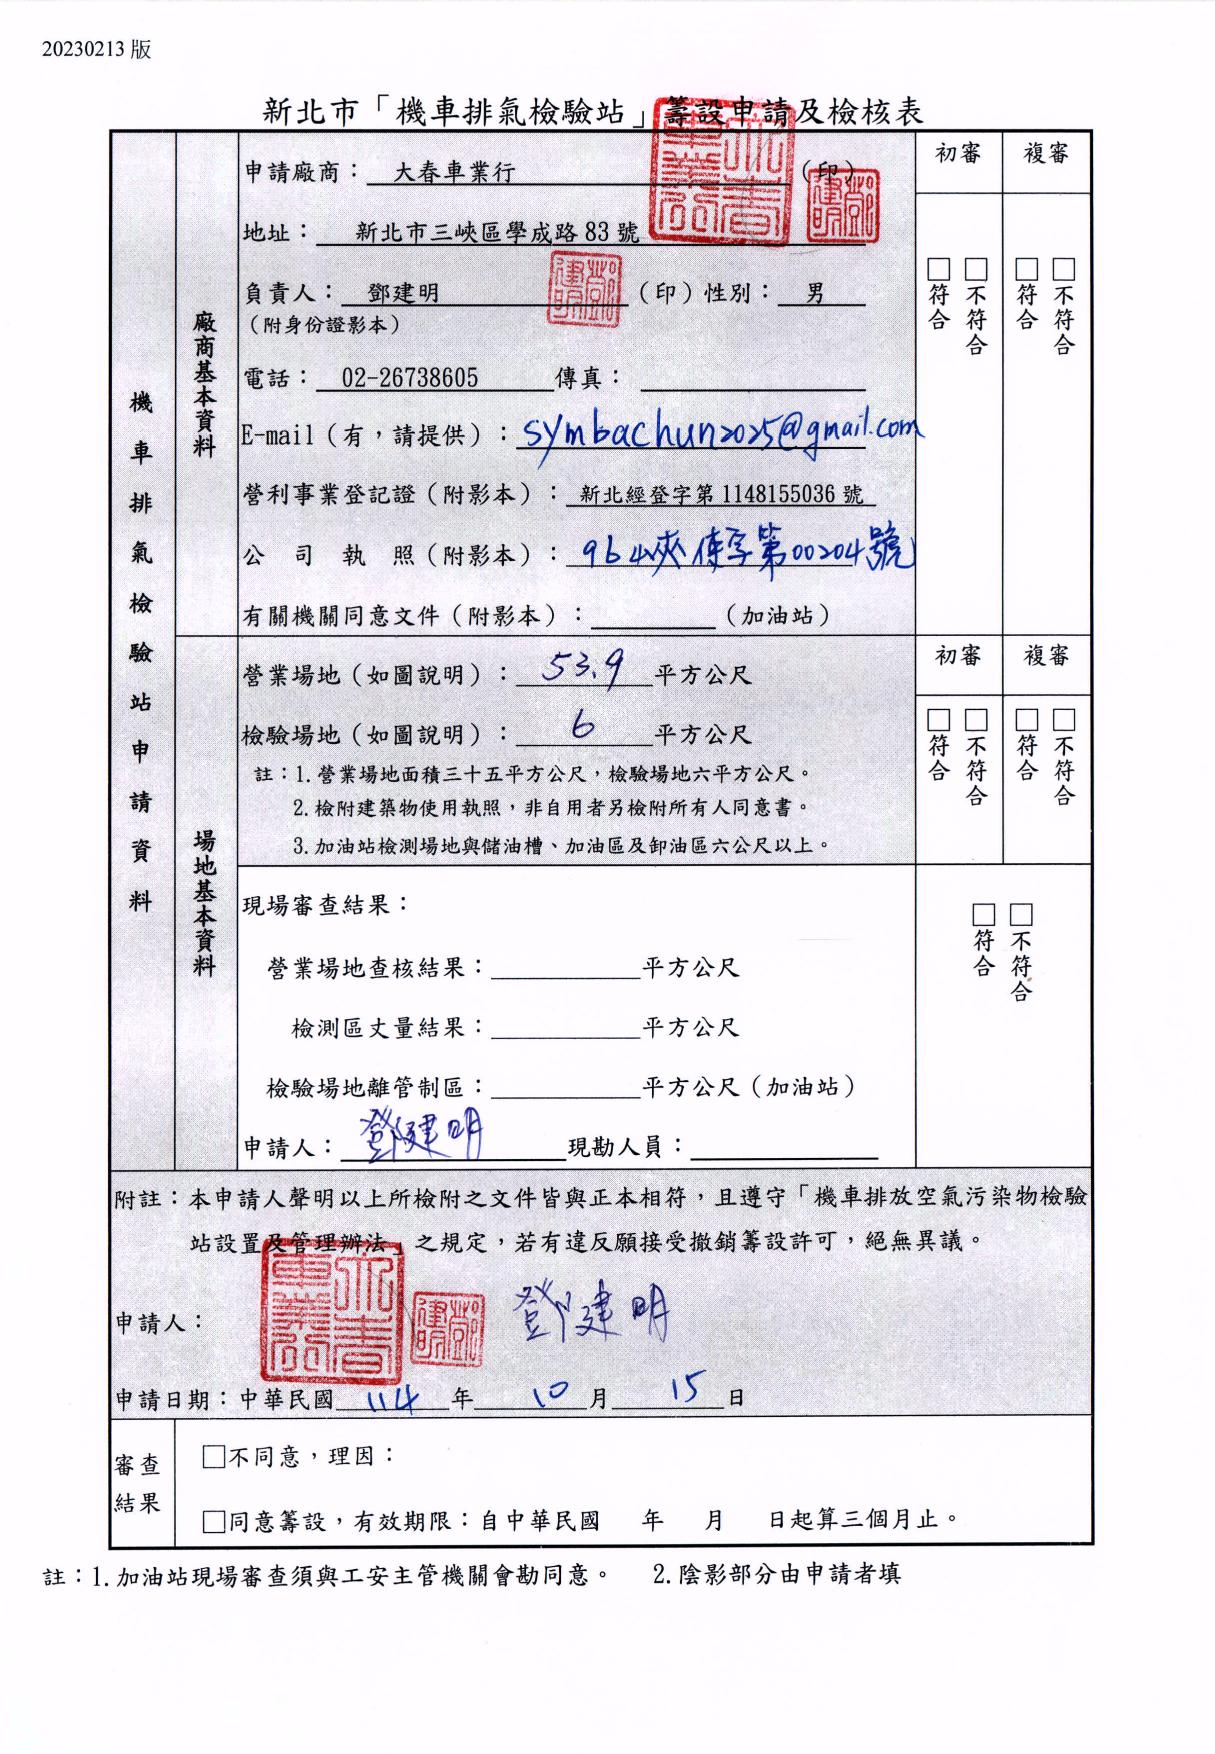 20230213 版
新北市「機車排氣檢驗站」籌設申請及檢核表
機車排氣檢驗站申請資料
廠商基本資料
申請廠商：大春車業行（印）
地址：新北市三峽區學成路 83 號
負責人：鄧建明（印）性別：男
（附身份證影本）
電話：02-26738605 傳真：
E-mail（有，請提供）：symbachun2025@gmail.com
營利事業登記證（附影本）：新北經登字第 1148155036 號
公司執照（附影本）：96山峽使字第00204號
有關機關同意文件（附影本）：（加油站）
初審 複審
□符合 □不符合 □符合 □不符合
場地基本資料
營業場地（如圖說明）：53.9平方公尺
檢驗場地（如圖說明）：6平方公尺
註：1.營業場地面積三十五平方公尺，檢驗場地六平方公尺。
2.檢附建築物使用執照，非自用者另檢附所有人同意書。
3.加油站檢測場地與儲油槽、加油區及卸油區六公尺以上。
初審 複審
□符合 □不符合 □符合 □不符合
現場審查結果：
營業場地查核結果：平方公尺
檢測區丈量結果：平方公尺
檢驗場地離管制區：平方公尺（加油站）
申請人：鄧建明 現勘人員：
□符合 □不符合
附註：本申請人聲明以上所檢附之文件皆與正本相符，且遵守「機車排放空氣污染物檢驗
站設置及管理辦法」之規定，若有違反願接受撤銷籌設許可，絕無異議。
申請人：鄧建明
大春車業行
鄧建明
申請日期：中華民國114年10月15日
審查結果
□不同意，理因：
□同意籌設，有效期限：自中華民國 年 月 日起算三個月止。
註：1.加油站現場審查須與工安主管機關會勘同意。 2.陰影部分由申請者填